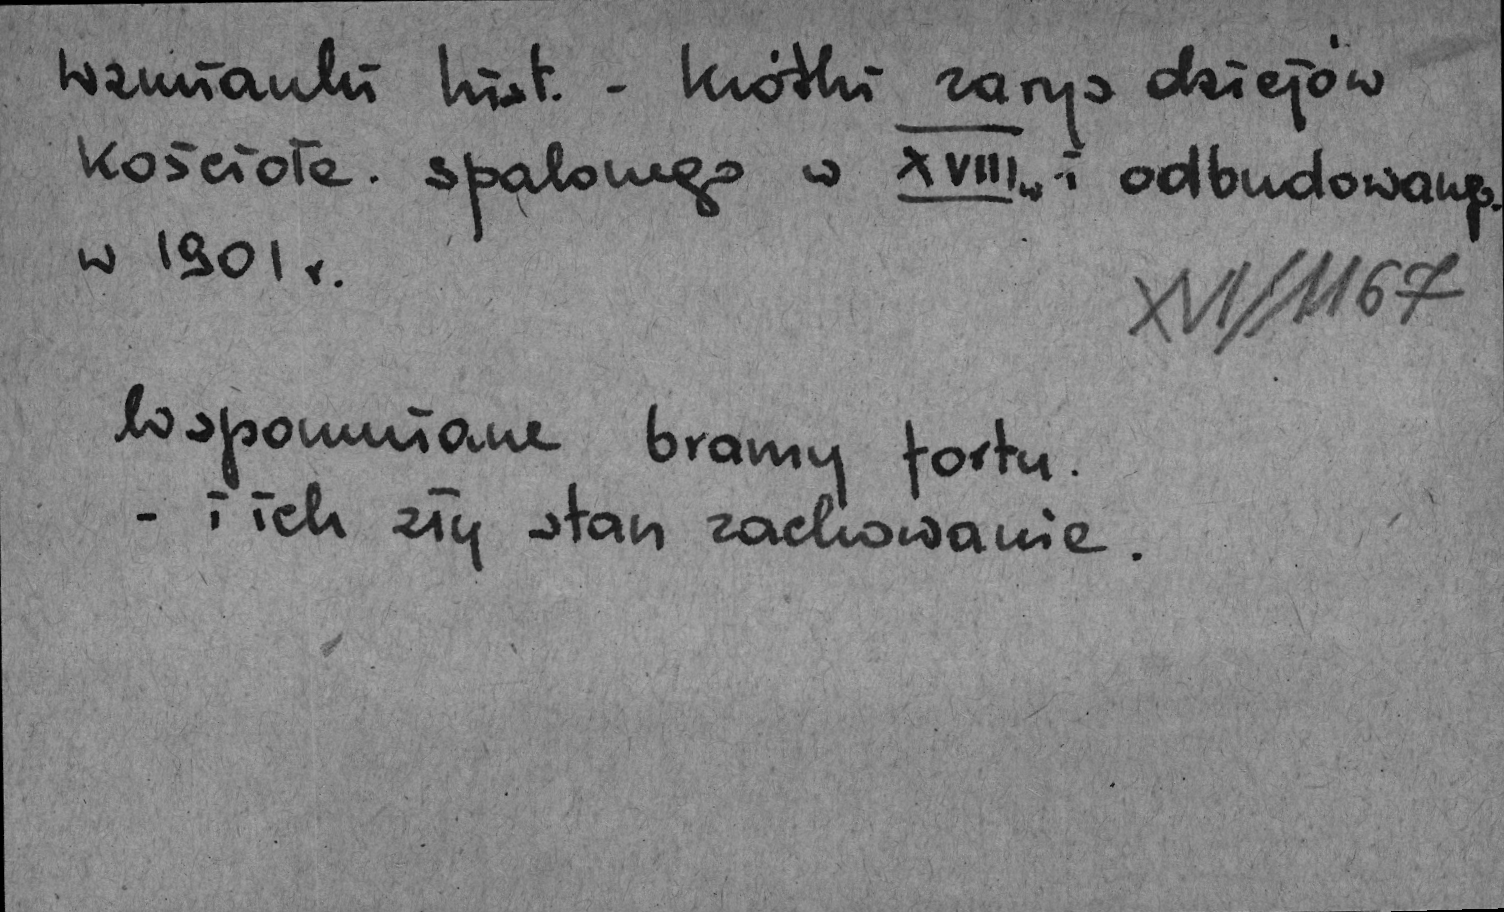 wzmianki hist. - krótki zarys dziejów
kościoła. spalonego w XVIII w i odbudowanego
w 1901 r.
XVI/1167
Wspomniane bramy fortu.
- i ich zły stan zachowania.